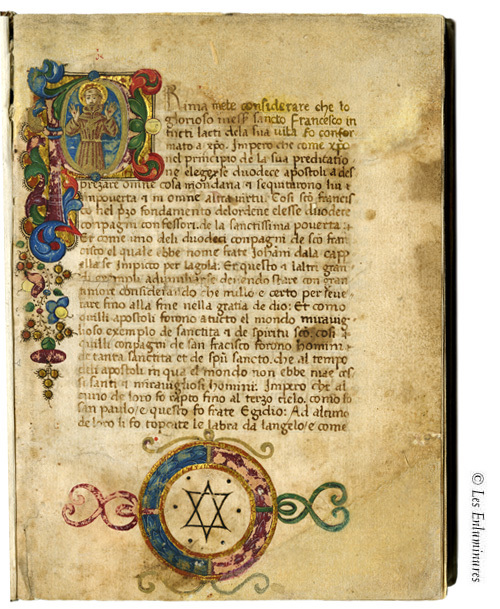 Rima mete considerare che lo
glorioso mess sancto Francesco in
tucti lacti dela sua vita fo confor
mato a xpo. Impero che come xpo
nel principio de la sua predicatio
ne elegesse duodece apostoli a des
prezare omne cosa mondana et sequitarono lui i
inpoverta et in omne altra virtu. Cosi sco francis
co nel pzo fondamento delordene elesse duodece
conpagni confessori de la sanctissima poverta:
Et come uno deli duodeci conpagni de sco fran
cisco el quale ebbe nome frate Johani dala capp
ella se impicco per la gola. Et questo
considerando che niuno e certo per seve
rare fino alla fine nella gratia de dio: Et como
quilli apostoli forono a tucto el mondo miravig
lioso exemplo de sanctita et de spiritu sco. cosi
quilli conpagni de san fracisco forono homini
de tanta sanctita et de spu sancto. che al tempo
deli apostoli in qua el mondo non ebbe mae cos
si santi et miravigliosi homini: Impero che al
cuno de loro fo rapto fino al terzo cielo, como fo
san paulo/e questo fo frate Egidio: Ad alcuno
de loro li fo toccate le labra da langelo/e come
© Les Enluminures